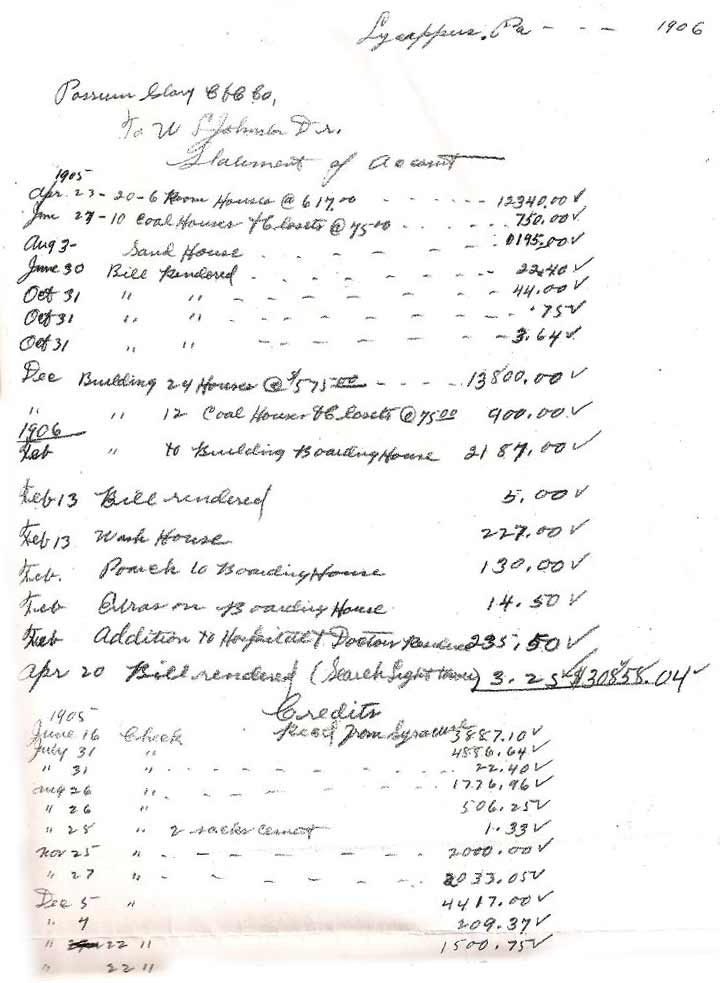 Lycippus, Pa - - - 1906
Possum Glory C & C Co,
To W S Johnston Dr.
Statement of Account
1905
Apr. 23 - 20 - 6 Room Houses @ 617.00 - - - - - 12340.00 ✓
June 27 - 10 Coal Houses & Closets @ 75.00 - - - - 750.00 ✓
Aug 3 - Sand House - - - - - - 195.00 ✓
June 30 Bill Rendered - - - - - - 22.40 ✓
Oct 31 " " - - - - - - - 44.00 ✓
Oct 31 " " - - - - - - - .75 ✓
Oct 31 " " - - - - - - - 3.64 ✓
Dec Building 24 Houses @ $575.00 - - - - 13800.00 ✓
" " 12 Coal Houses & Closets @ 75.00 900.00 ✓
1906
Feb " to Building Boarding House 2187.00 ✓
Feb 13 Bill rendered 5.00 ✓
Feb 13 Wash House 227.00 ✓
Feb. Porch to Boarding House 130.00 ✓
Feb Extras on Boarding House 14.50 ✓
Feb Addition to Hospital & Doctor Residence 235.50 ✓
Apr 20 Bill rendered (Search Light tower) 3.25 ✓ $30858.04 ✓
Credits
1905
June 16 Check Recd from Syracuse 3887.10 ✓
July 31 " 4886.64 ✓
" 31 " - - - - - - - - 22.40 ✓
Aug 26 " - - - - - - - 1776.96 ✓
" 26 " 506.25 ✓
" 28 " 2 sacks cement 1.33 ✓
Nov 25 " - - - - - - - 2000.00 ✓
" 27 " - - - - - - - 2033.05 ✓
Dec 5 " 4417.00 ✓
" 7 209.37 ✓
" 22 " 1500.75 ✓
" 22 "